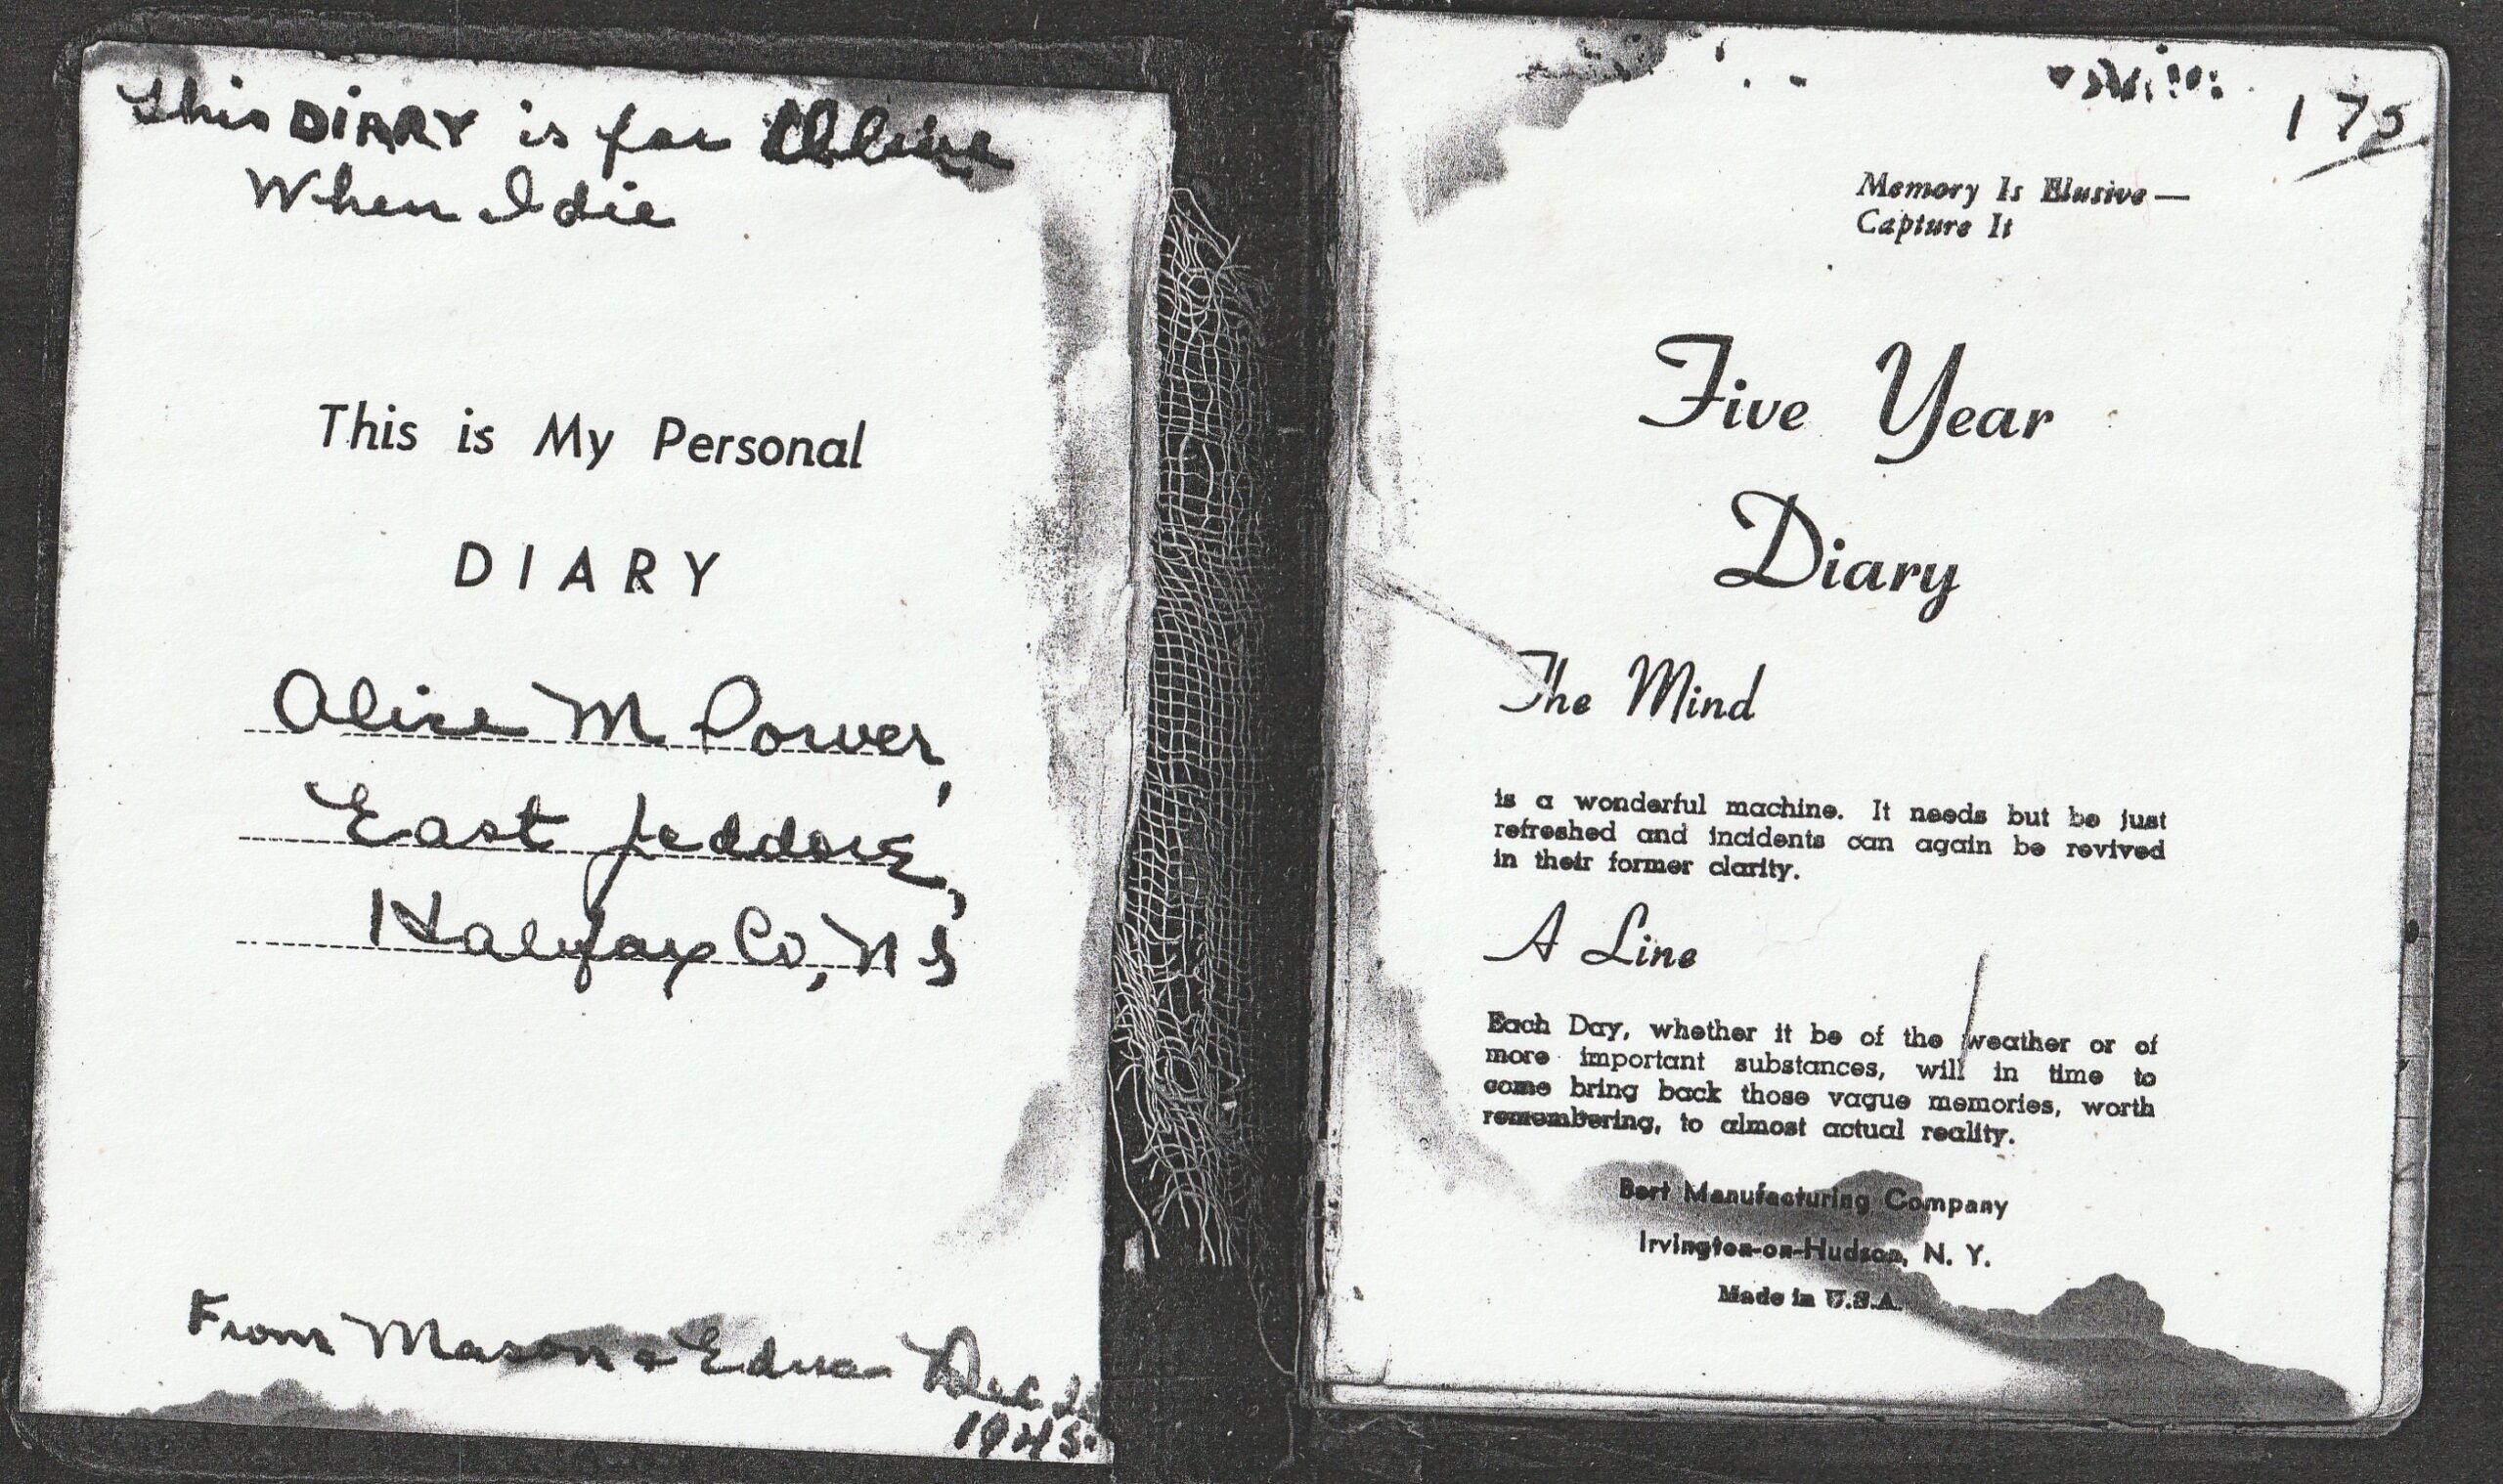 This DIARY is for
When I die
This is My Personal
DIARY
Alice M Power,
East Jeddore,
Halifax Co, N S
From Mason & Edna Dec
1945.
175
Memory Is Elusive—
Capture It
Five Year
Diary
The Mind
is a wonderful machine. It needs but be just
refreshed and incidents can again be revived
in their former clarity.
A Line
Each Day, whether it be of the weather or of
more important substances, will in time to
come bring back those vague memories, worth
remembering, to almost actual reality.
Bert Manufacturing Company
Irvington-on-Hudson, N. Y.
Made in U.S.A.